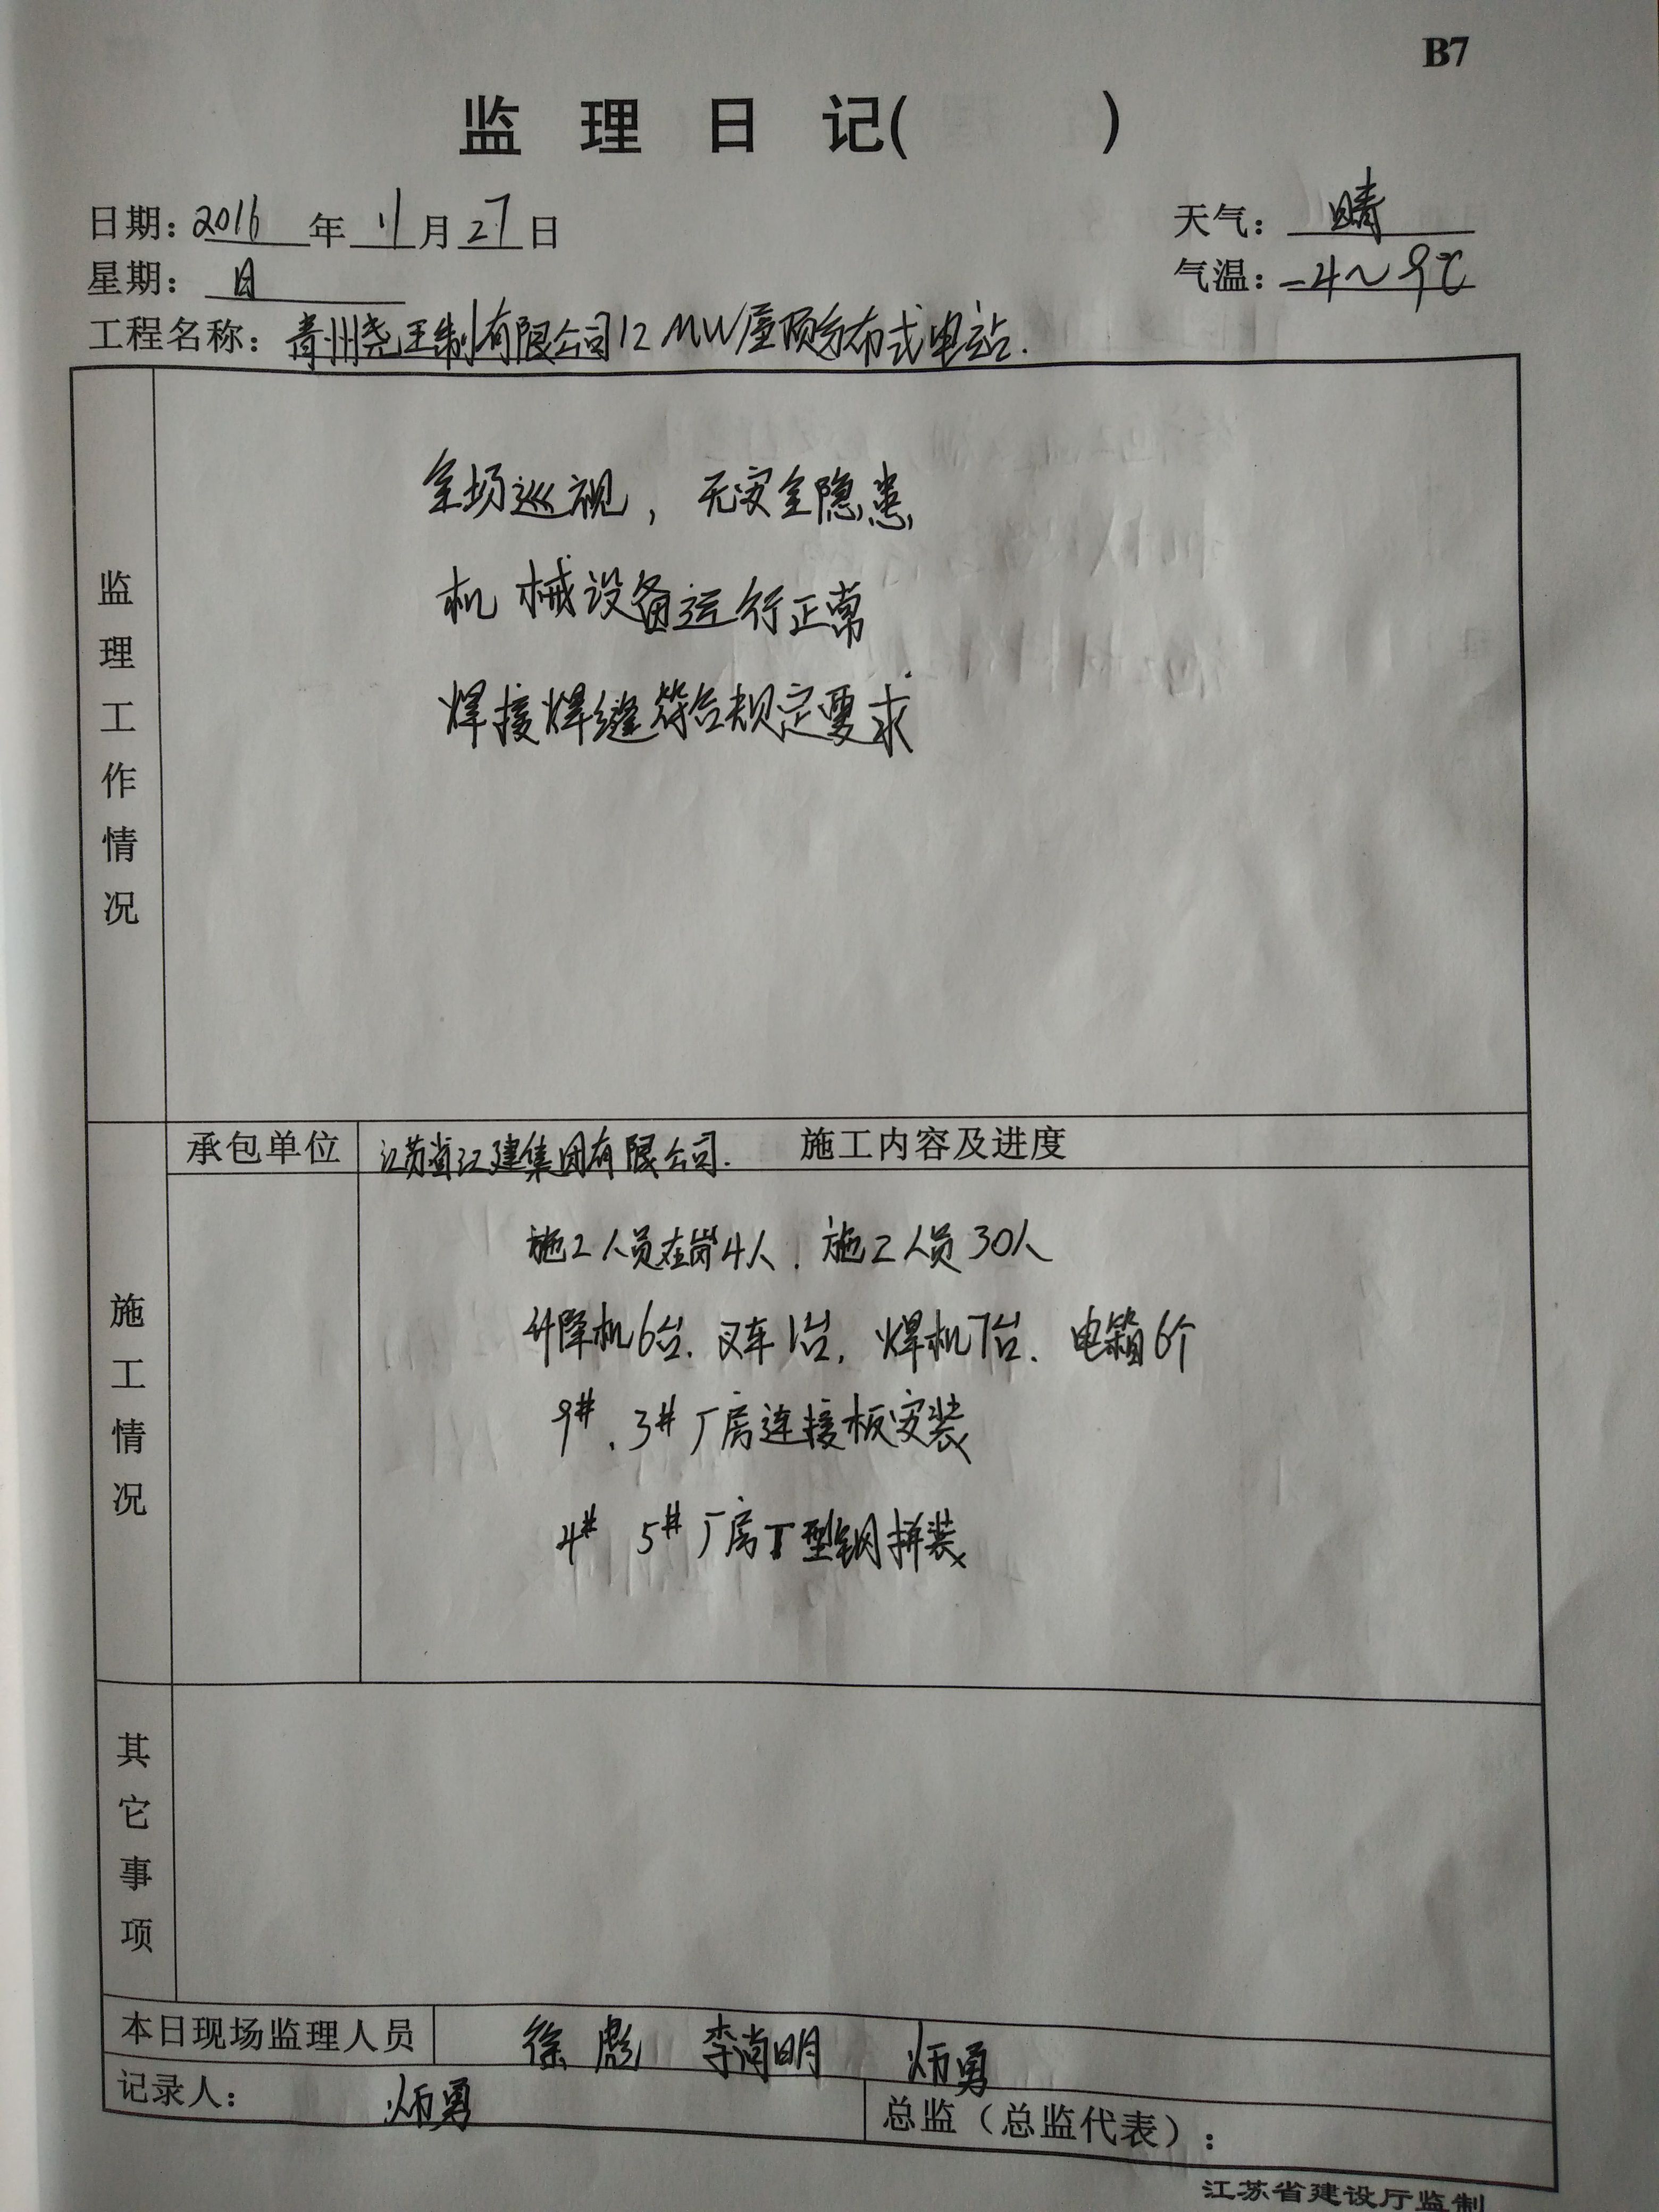 B7
监理日记(　　)
日期：2016年11月27日　天气：晴
星期：日　气温：-4～9℃
工程名称：青州尧王制有限公司12MW屋顶分布式电站.
监理工作情况
全场巡视，无安全隐患
机械设备运行正常
焊接焊缝符合规定要求
承包单位　江苏省江建集团有限公司.　施工内容及进度
施工情况
施工人员在岗4人，施工人员30人
升降机6台、叉车1台，焊机7台、电箱6个
9#、3#厂房连接板安装
4# 5#厂房T型钢拼装
其它事项
本日现场监理人员　徐彪　李尚明　炳勇
记录人：炳勇　总监（总监代表）：
江苏省建设厅监制